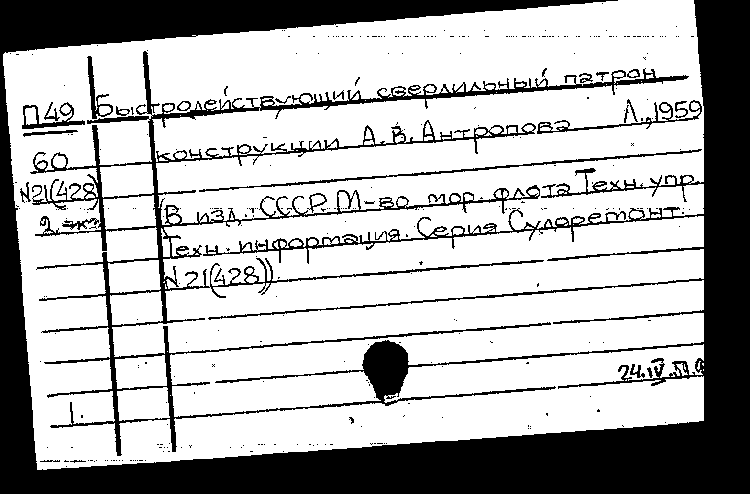 П49 Быстродействующий сверлильный патрон
60 конструкции А.В. Антропова Л., 1959
N21(428)
2.
(В изд.: СССР. М-во мор. флота Техн. упр.
Техн. информация. Серия Судоремонт.
N21(428))
24.IV.59.
1.